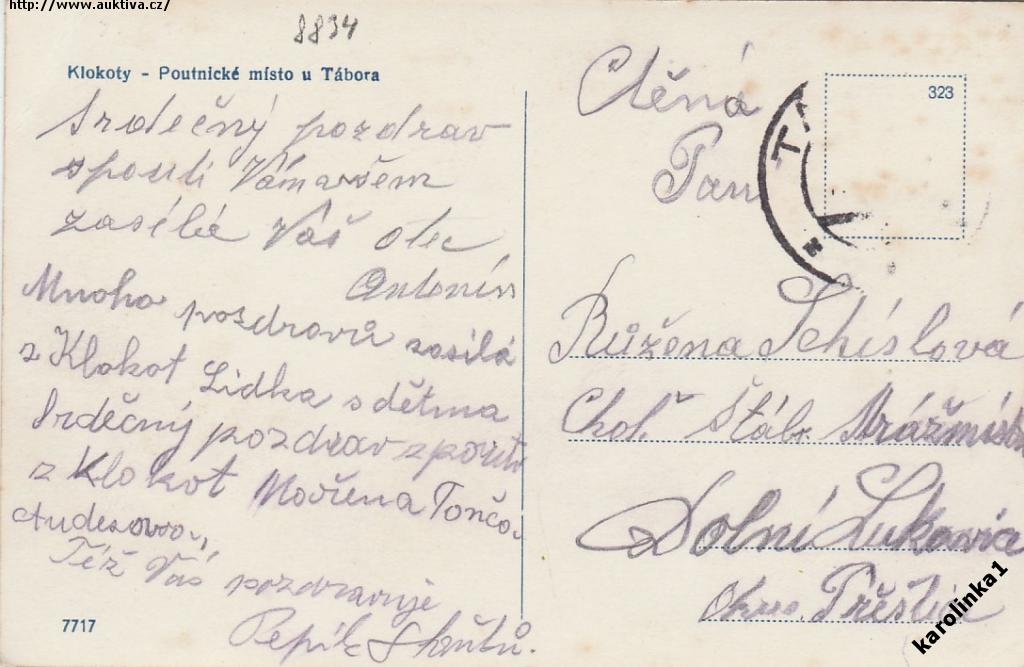 http://www.auktiva.cz/
8834
Klokoty - Poutnické místo u Tábora
Srdečný pozdrav
s pouti Vám všem
zasélá Váš otec
Antonín
Mnoho pozdravů zasílá
z Klokot Lidka s dětma
Srděčný pozdrav z pouti
z Klokot Mařena Tonča
Též Vás pozdravuje
Pepík
7717
323
Ctěná
Paní
T
Růžena Schislová
Choť Štáb. strážmistra
Dolní Lukavia
okres Přeštice
karolinka1